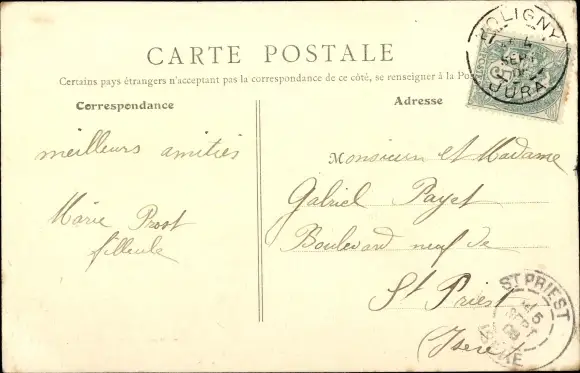 CARTE POSTALE
Certains pays étrangers n'acceptant pas la correspondance de ce côté, se renseigner à la Pos
Correspondance
Adresse
meilleurs amitiés
Marie Proot
filleule
Monsieur et Madame
Gabriel Payet
Boulevard neuf de
St Priest
(Isère)
POLIGNY
SEPT
JURA
ST PRIEST
5
SEPT
ISERE